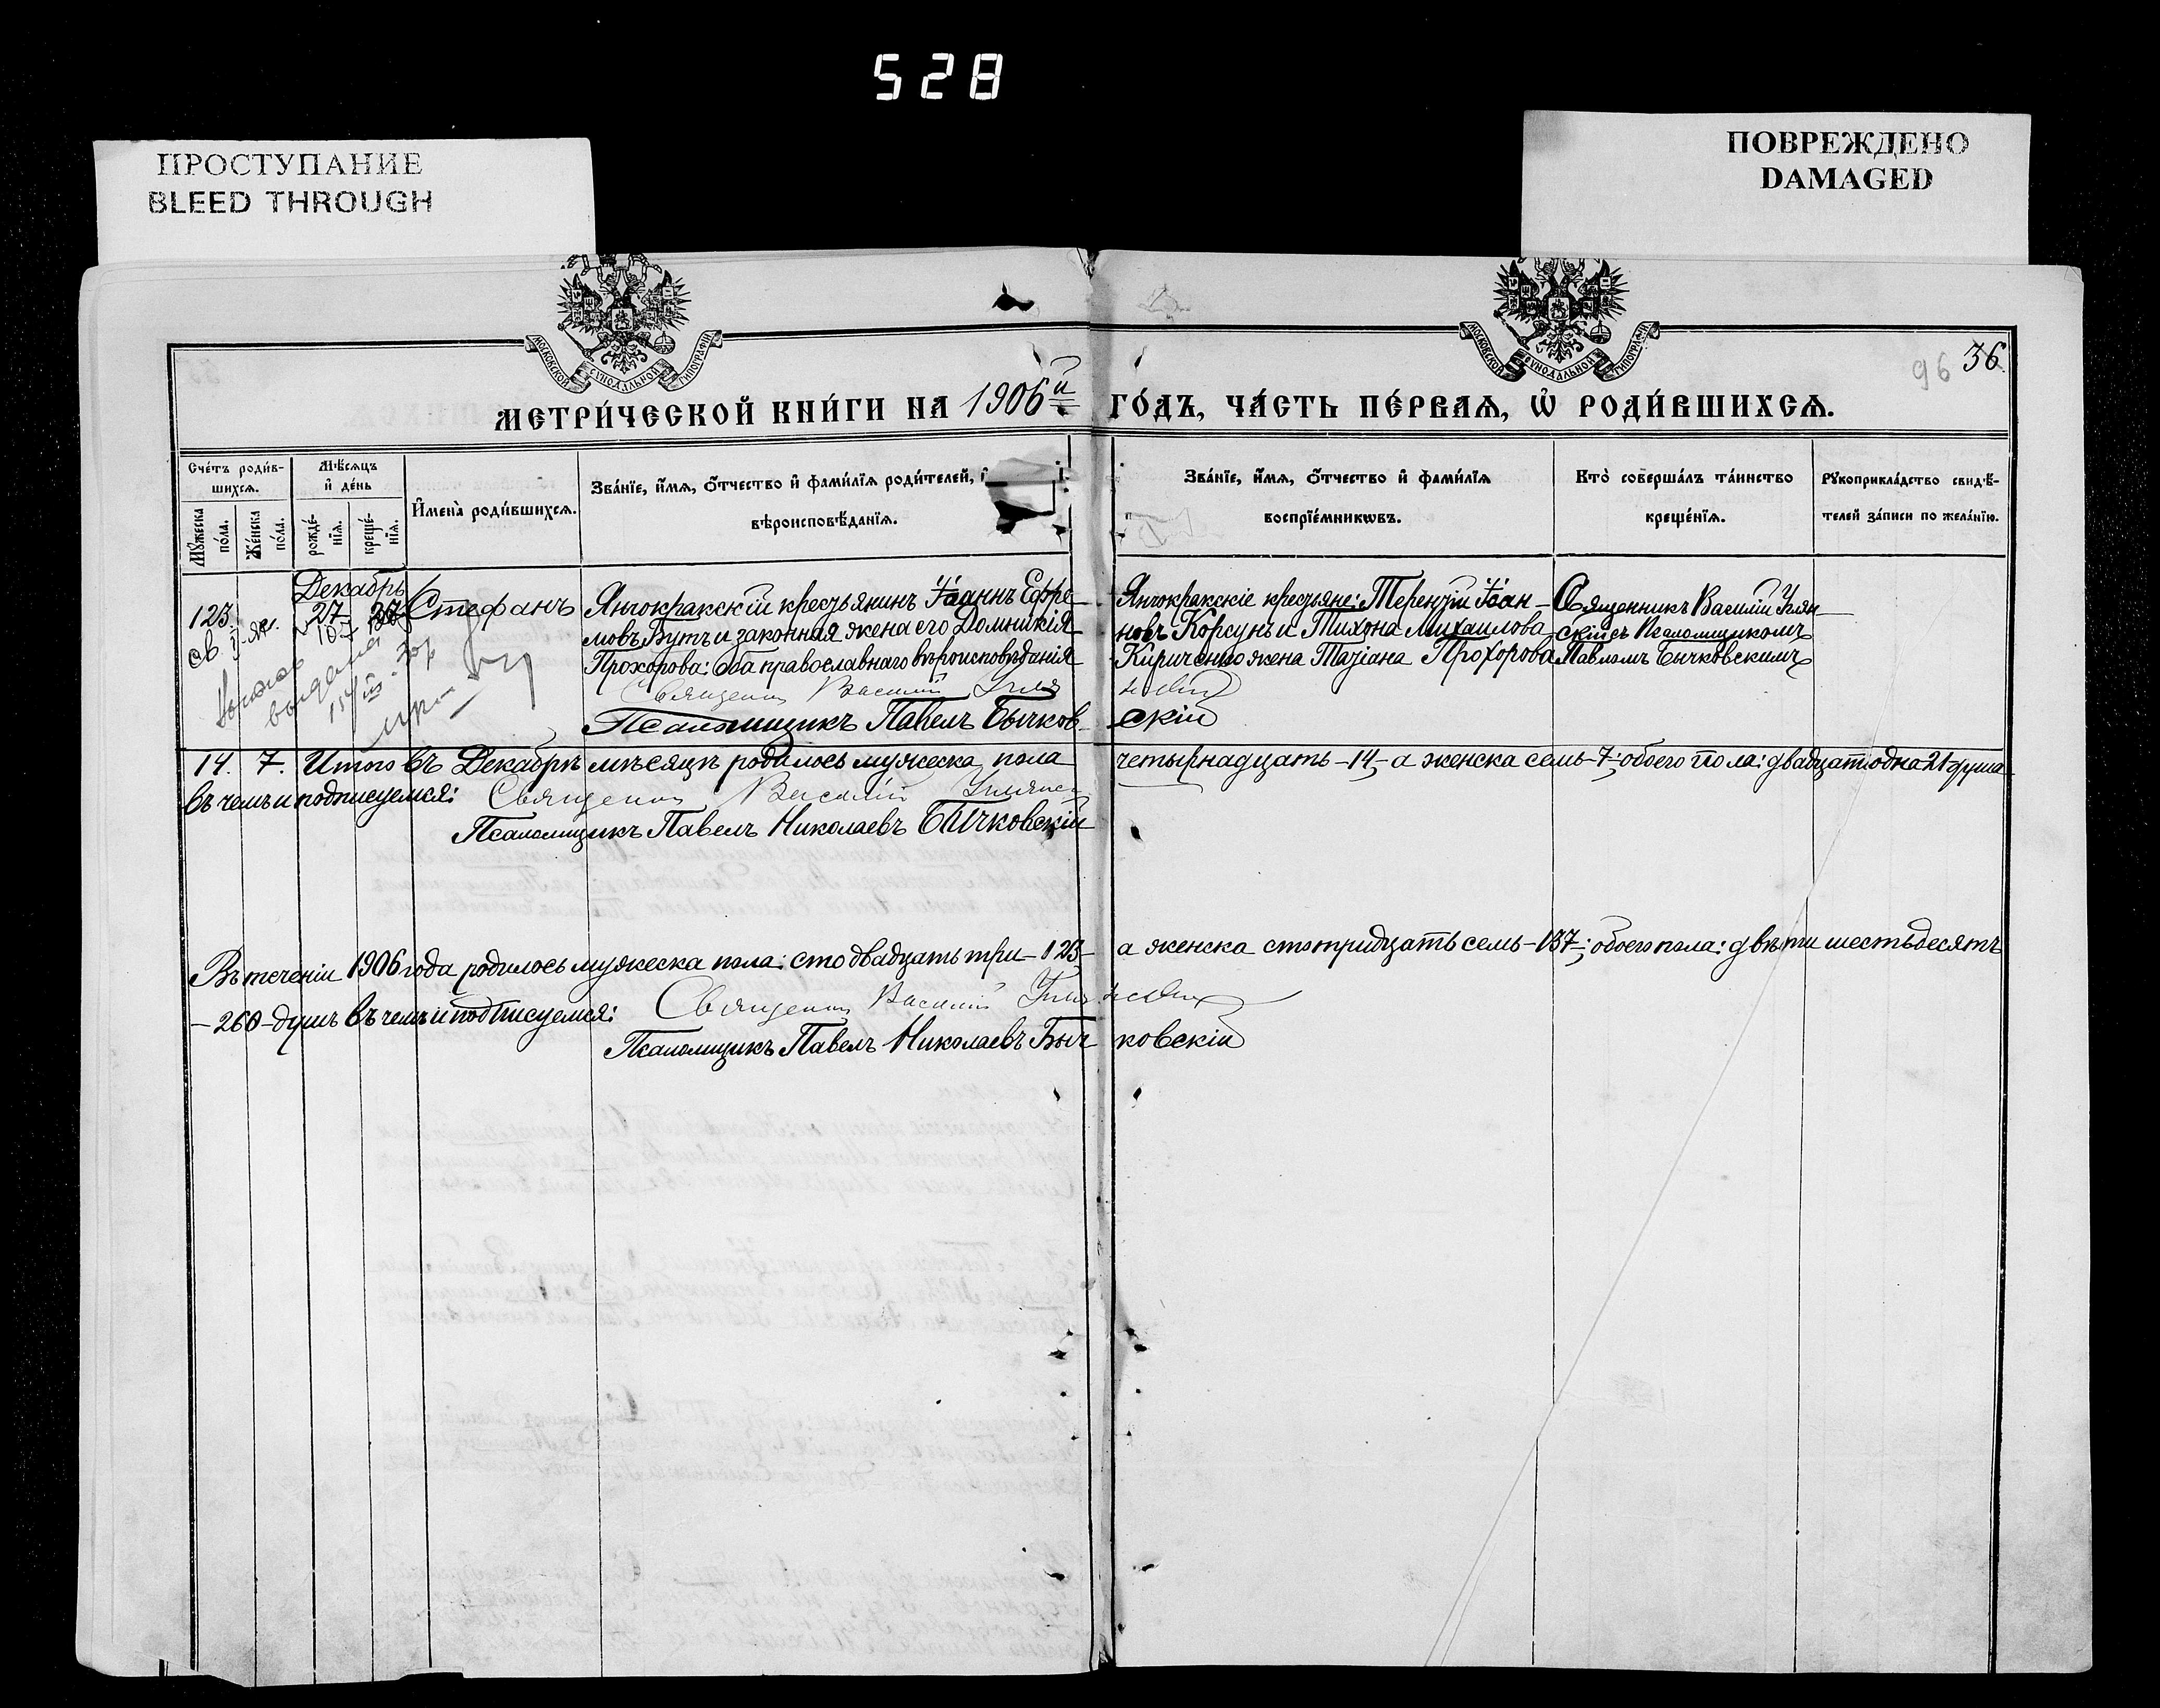 528
ПРОСТУПАНИЕ
BLEED THROUGH
ПОВРЕЖДЕНО
DAMAGED
МОСКОВСКОЙ СѴНОДАЛЬНОЙ ТИПОГРАФІИ
МОСКОВСКОЙ СѴНОДАЛЬНОЙ ТИПОГРАФІИ
96 36
МЕТРИ́ЧЕСКОЙ КНИ́ГИ НА 1906й ГО́ДЪ, ЧА́СТЬ ПЕ́РВАѦ, Ѡ҆ РОДИ́ВШИХСѦ.
Сче́тъ роди́в-
шихсѧ.
Мꙋ́жеска по́ла.
Же́нска по́ла.
Мѣ́сѧцъ и҆ де́нь
рожде́-нїѧ.
креще́-нїѧ.
И҆мена̀ роди́вшихсѧ.
Зва́нїе, и҆́мѧ, ѻ҆́тчество и҆ фами́лїѧ роди́телей, и҆
вѣроисповѣ́данїѧ.
Зва́нїе, и҆́мѧ, ѻ҆́тчество и҆ фами́лїѧ
воспрїе́мникѡвъ.
Кто̀ соверша́лъ та́инство
креще́нїѧ.
Рꙋкоприкла́дство свидѣ́-
телей за́писи по жела́нїю.
Декабрь
123. 27 Стефанъ
Янчокракскій крестьянинъ Іоаннъ Ефре-
мовъ Бутъ и законная жена его Домникія
Прохорова: оба православнаго вѣроисповѣданія
Священник Василій Улья
Псаломщикъ Павелъ Бычков-
Янчокракскіе крестьяне: Терентій Іоан-
новъ Корсунь и Тихона Михаилова
Кириченко жена Татіана Прохорова
скій
Священникъ Василій Улья-
скій съ Псаломщикомъ
Павломъ Бычковскимъ
выдана
14. 7. Итого въ Декабрѣ мѣсяцѣ родилось мужеска пола четырнадцать -14,- а женска семь -7-; обоего пола: двадцать одна 21 душа
въ чемъ и подписуемся: Священник Василій
Псаломщикъ Павелъ Николаевъ Бычковскій
Въ теченіи 1906 года родилось мужеска пола: сто двадцать три -123- а женска сто тридцать семь -137-; обоего пола: двѣсти шестьдесятъ
-260- душъ въ чемъ и подписуемся: Священник Василій
Псаломщикъ Павелъ Николаевъ Быч-ковскій